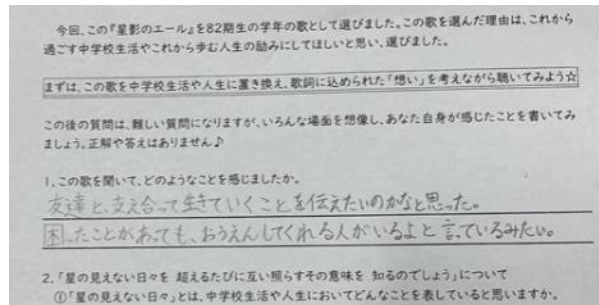 今回、この『星影のエール』を82期生の学年の歌として選びました。この歌を選んだ理由は、これから
過ごす中学校生活やこれから歩む人生の励みにしてほしいと思い、選びました。
まずは、この歌を中学校生活や人生に置き換え、歌詞に込められた「想い」を考えながら聴いてみよう☆
この後の質問は、難しい質問になりますが、いろんな場面を想像し、あなた自身が感じたことを書いてみ
ましょう。正解や答えはありません♪
1.この歌を聞いて、どのようなことを感じましたか。
友達と、支え合って生きていくことを伝えたいのかなと思った。
困ったことがあっても、おうえんしてくれる人がいるよと言っているみたい。
2.「星の見えない日々を 超えるたびに互い照らすその意味を 知るのでしょう」について
①「星の見えない日々」とは、中学校生活や人生においてどんなことを表していると思いますか。